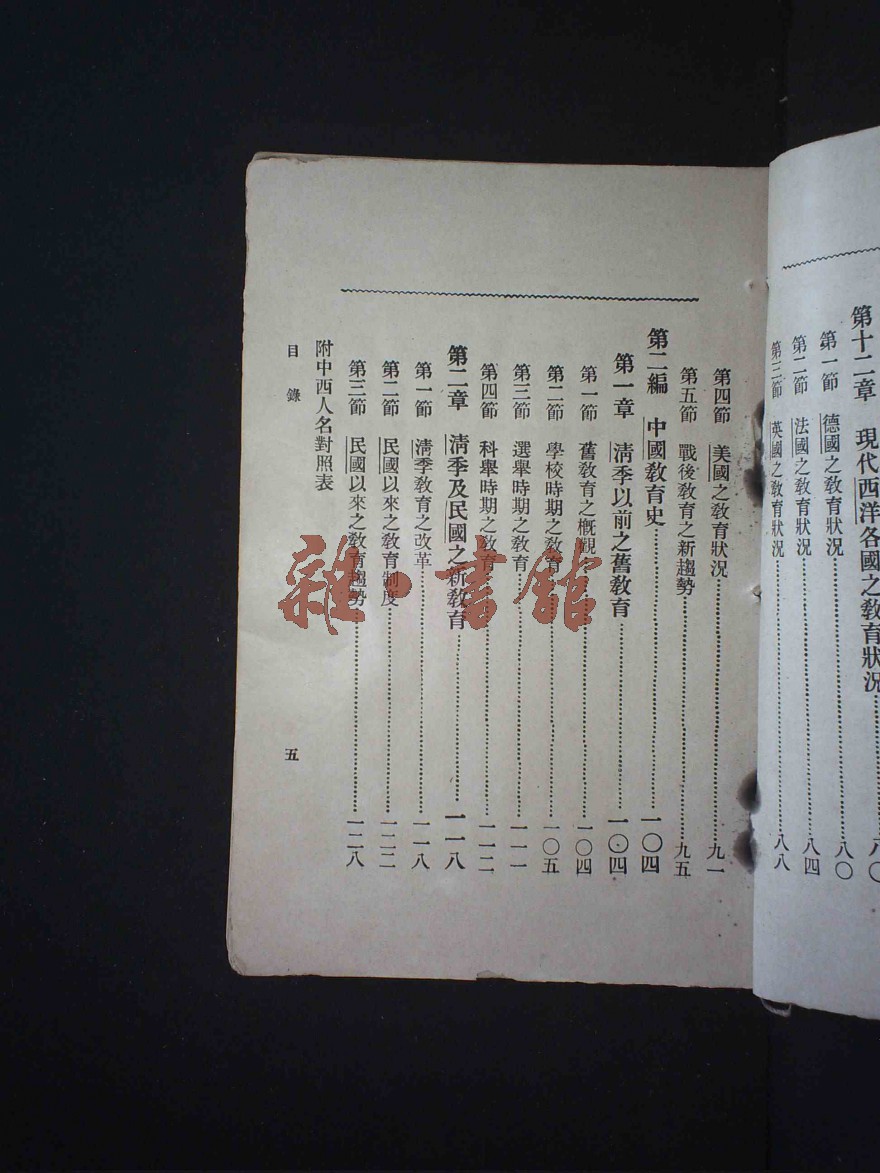 第十二章 現代西洋各國之教育狀況……八〇
第一節 德國之教育狀況……八〇
第二節 法國之教育狀況……八四
第三節 英國之教育狀況……八八
第四節 美國之教育狀況……九一
第五節 戰後教育之新趨勢……九五
第二編 中國教育史……一〇四
第一章 清季以前之舊教育……一〇四
第一節 舊教育之概觀……一〇四
第二節 學校時期之教育……一〇五
第三節 選舉時期之教育……一一一
第四節 科舉時期之教育……一一二
第二章 清季及民國之新教育……一一八
第一節 清季教育之改革……一一八
第二節 民國以來之教育制度……一二二
第三節 民國以來之教育趨勢……一二八
附中西人名對照表
目錄
五
雜·書館